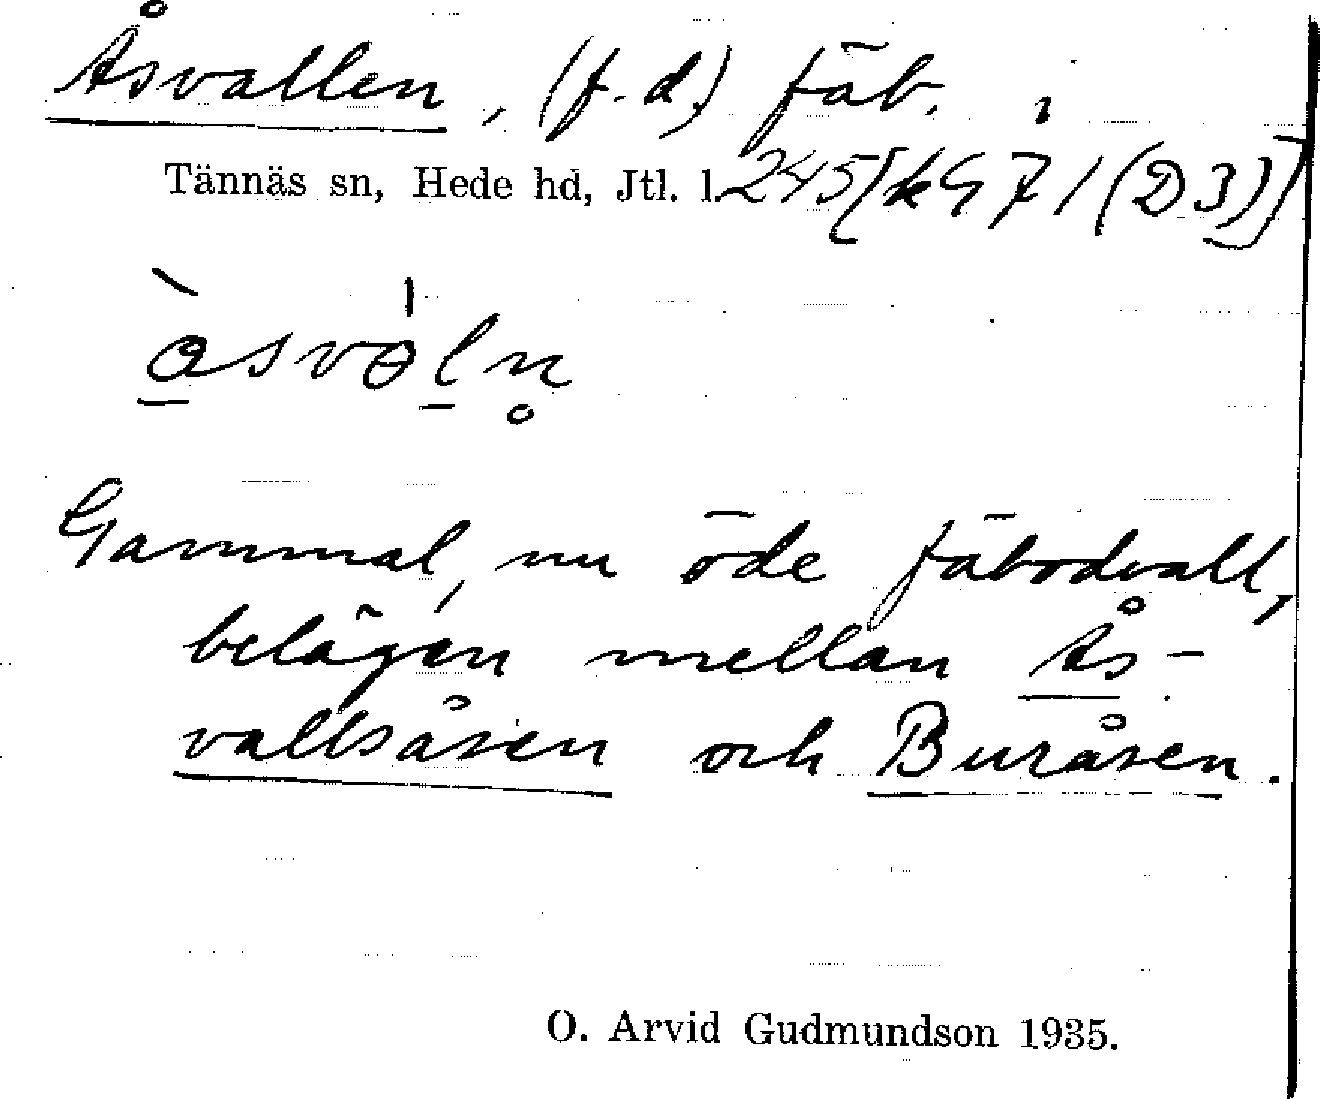 Åsvallen, (f.d.) fäb. i
Tännäs sn, Hede hd, Jtl. l. 245[k971(D3)]
Gammal, nu öde fäbodvall,
belägen mellan Ås-
vallsåsen och Buråsen.
O. Arvid Gudmundson 1935.